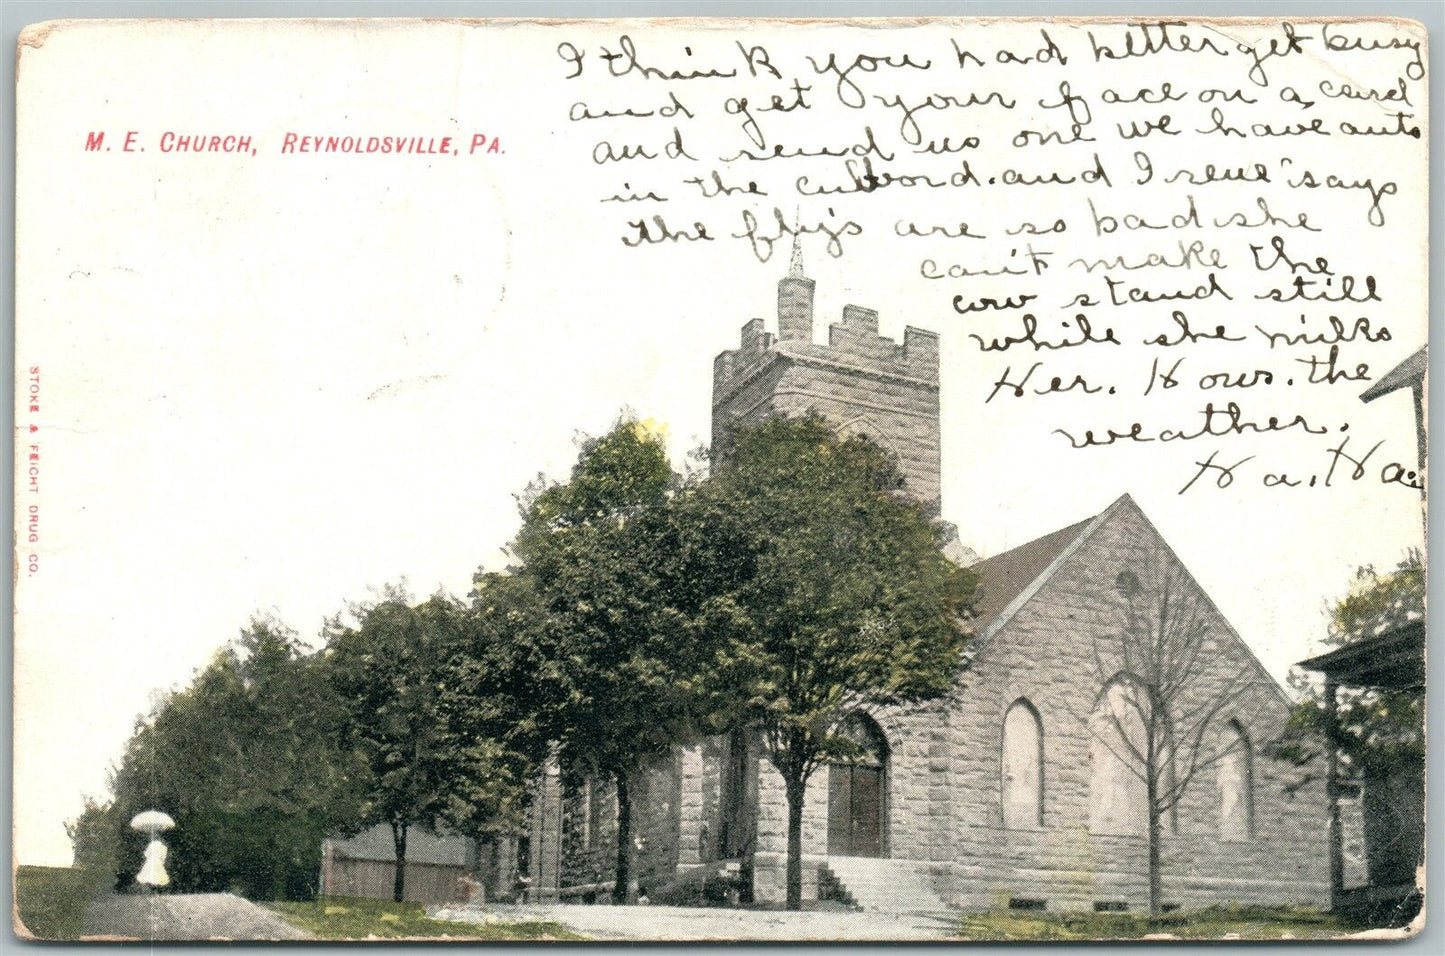 M. E. CHURCH, REYNOLDSVILLE, PA.
STOKE & FEICHT DRUG CO.
I think you had better get busy
and get your face on a card
and send us one we have auto
in the cubbord. and Irene says
the fly's are so bad she
can't make the
cow stand still
while she milks
Her. Hows. the
weather.
Ha. Ha.